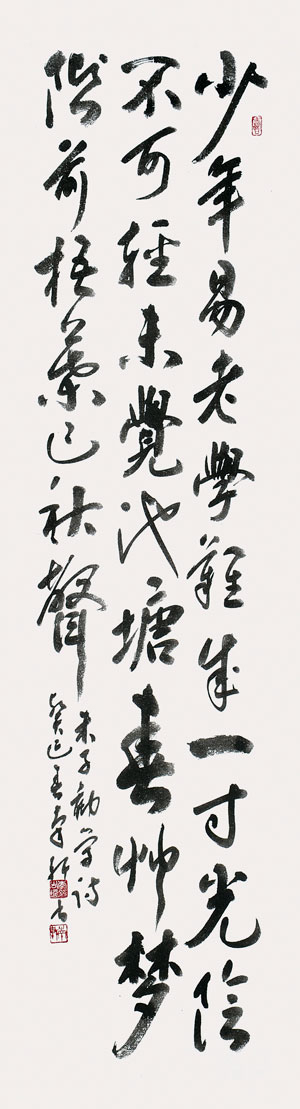 少年易老學難成一寸光陰
不可輕未覺池塘春艸梦
階前梧葉已秋聲
朱子勸学詩
癸巳春